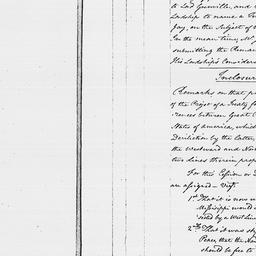 to Lord Grenville, and
Lordship to name a
Jay, on the Subject of
In the mean time, M
submitting the Remar
His Lordship's Consider
Inclosur
Remarks on that p
of the Project of a Treaty f
rences between Great
States of america, whic
Dereliction by the latter
the Westward and Nor
two lines therein prop
For this Cession or
are assigned — Viz.
1st That it is now
Mississippi would
sected by a West line
2nd That it was
Peace, that the
should be free to